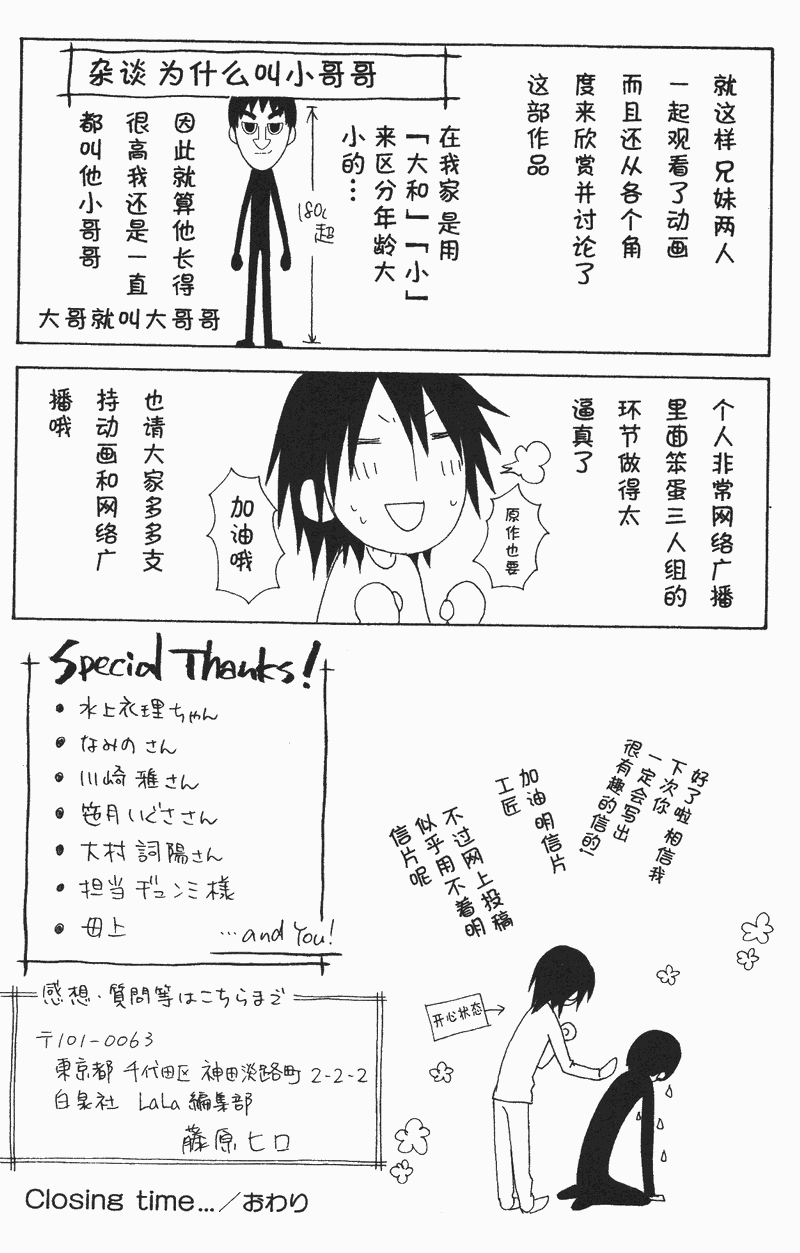 就这样 兄妹两人
一起观看了动画
而且还从各个角
度来欣赏并讨论了
这部作品
杂谈 为什么叫小哥哥
在我家是用
「大和」「小」
来区分年龄大
小的…
180c
超
因此就算他长得
很高我还是一直
都叫他小哥哥
大哥就叫大哥哥
个人非常网络广播
里面笨蛋三人组的
环节做得太
逼真了
原作也要
加油哦
也请大家多多支
持动画和网络广
播哦
Special Thanks!
• 水上衣理ちゃん
• なみの さん
• 川崎 雅さん
• 笹月 いぐささん
• 大村 詞陽さん
• 担当 ヂュンミ様
• 母上
…and You!
好了啦 相信我
下次你
一定会写出
很有趣的信的!
加油 明信片
工匠
不过网上投稿
似乎用不着明
信片呢
开心状态
感想・質問等はこちらまで
〒101-0063
東京都 千代田区 神田淡路町 2-2-2
白泉社 LaLa 編集部
藤原ヒロ
Closing time…／おわり